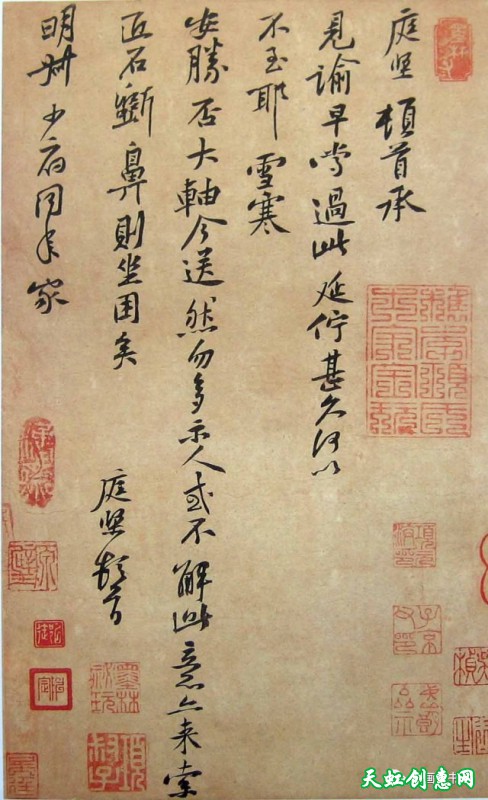 庭堅頓首承
見諭早嘗過此延佇甚久何以
不至耶雪寒
安勝否大軸今送然勿多示人或不解此意亦來索
匠石斲鼻則坐困矣
庭堅頓首
明叔少府同年家
墨林祕玩
子京父印
天虹创意网